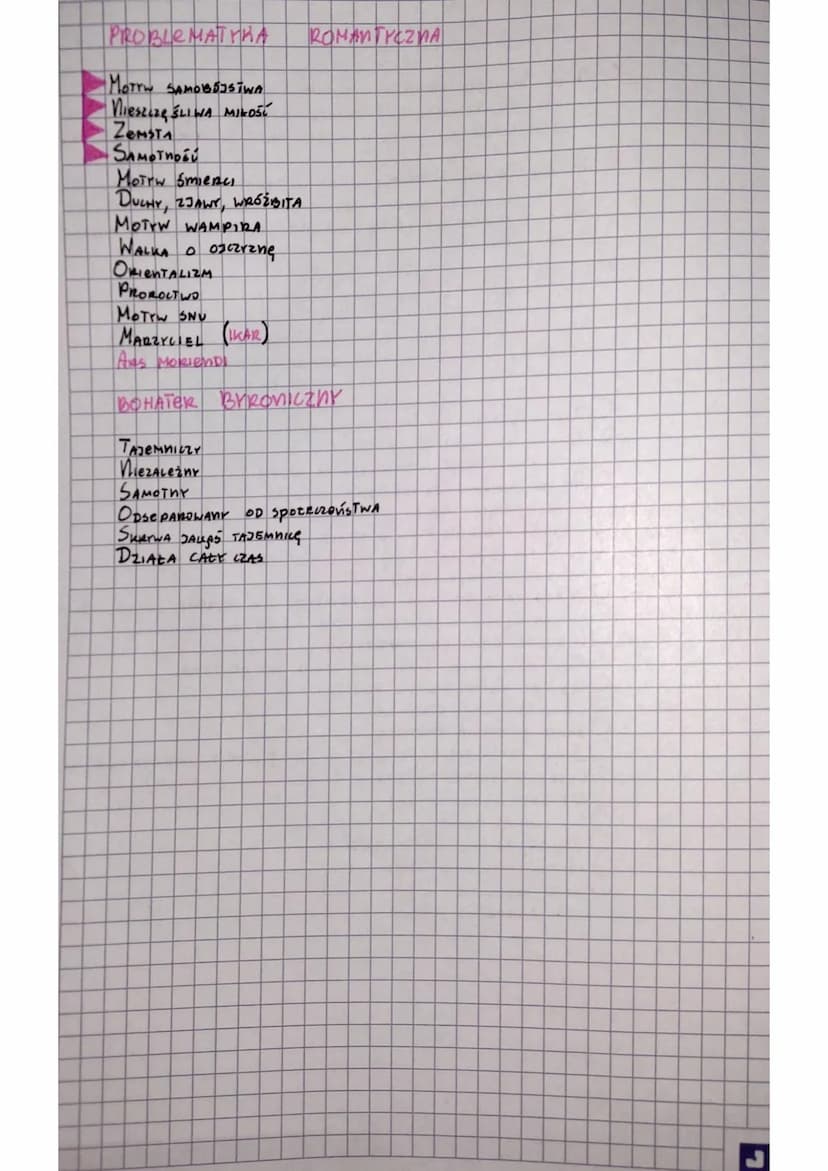 PROBLEMATYKA ROMANTYCZNA
MOTYW SAMOBÓJSTWA
NIESZCZĘŚLIWA MIŁOŚĆ
ZEMSTA
SAMOTNOŚĆ
MOTYW ŚMIERCI
DUCHY, ZJAWY, WRÓŻBITA
MOTYW WAMPIRA
WALKA O OJCZYZNĘ
ORIENTALIZM
PROROCTWO
MOTYW SNU
MARZYCIEL (IKAR)
ARS MORIENDI
BOHATER BYRONICZNY
TAJEMNICZY
NIEZALEŻNY
SAMOTNY
ODSEPAROWANY OD SPOŁECZEŃSTWA
SKRYWA JAKĄŚ TAJEMNICĘ
DZIAŁA CAŁY CZAS